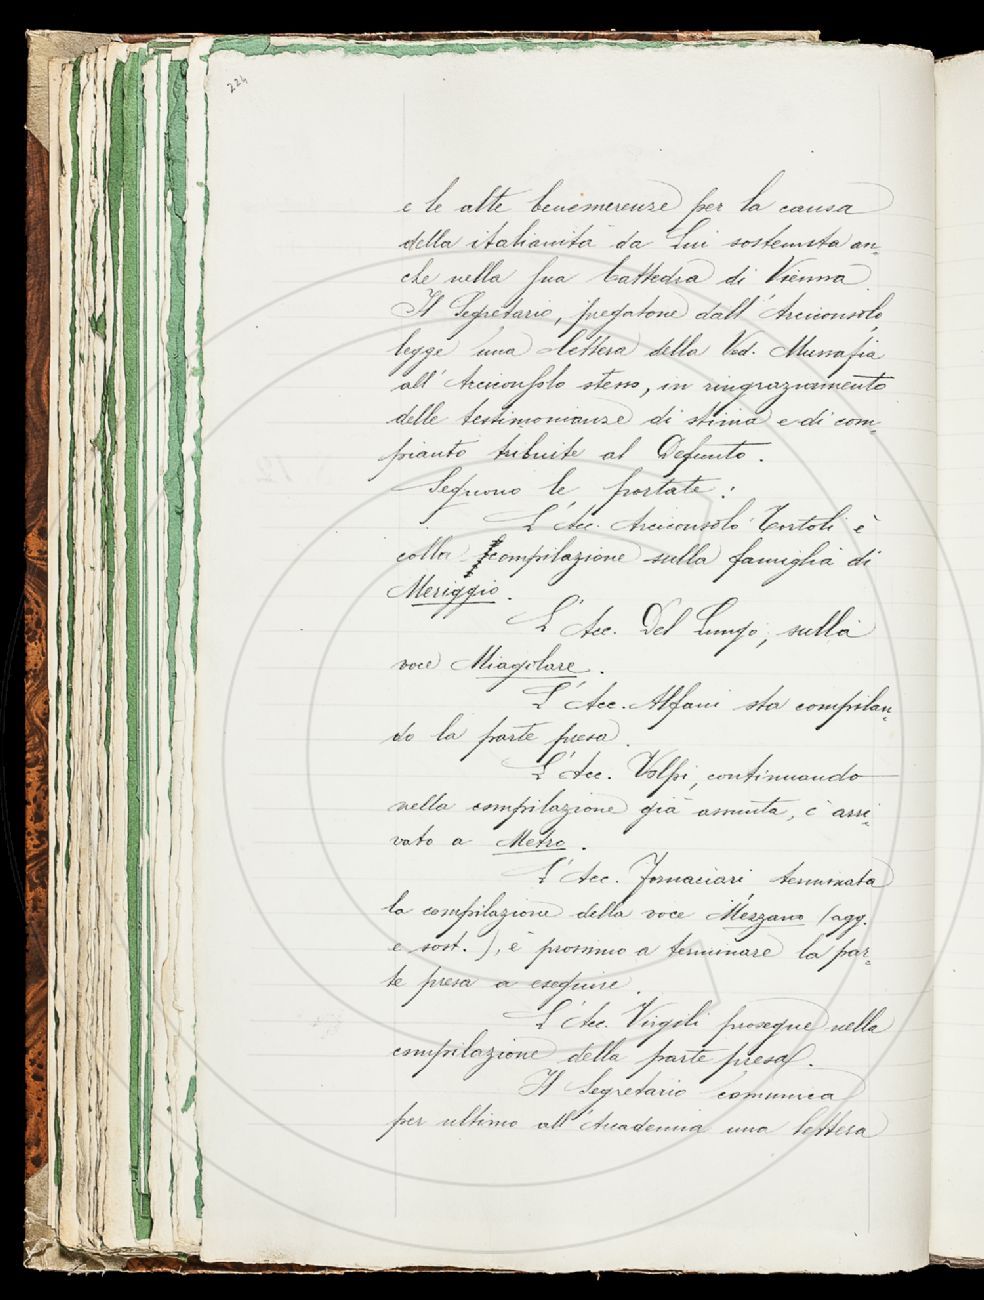 224
e le alte benemerenze per la causa
della italianità da Lui sostenuta an-
che nella Sua Cattedra di Vienna.
Il Segretario, pregatone dall'Arciconsolo,
legge una lettera della Ved. Mussafia
all'Arciconsolo stesso, in ringraziamento
delle testimonianze di stima e di com-
pianto tribuite al Defunto.
Seguono le portate:
L'Acc. Arciconsolo Tortoli è
colla compilazione sulla famiglia di
Meriggio.
L'Acc. Del Lungo, sulla
voce Miagolare.
L'Acc. Alfani sta compilan-
do la parte presa.
L'Acc. Volpi, continuando
nella compilazione già assunta, è arri-
vato a Metro.
L'Acc. Fornaciari, terminata
la compilazione della voce Mezzano (agg.
e sost.), è prossimo a terminare la par-
te presa a eseguire.
L'Acc. Virgili prosegue nella
compilazione della parte presa.
Il Segretario comunica
per ultimo all'Accademia una lettera